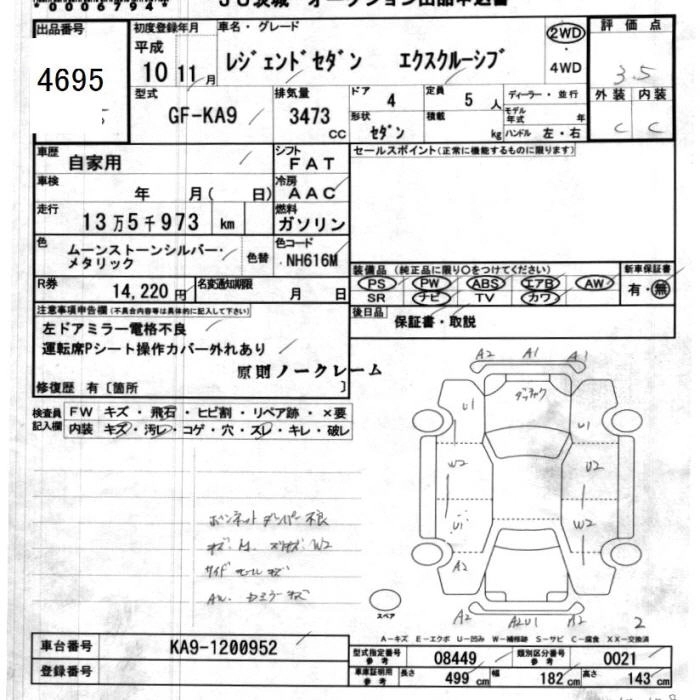 0006794
JU茨城 オークション出品申込書
出品番号 4695
初度登録年月 平成 10 11月
車名・グレード レジェンドセダン エクスクルーシブ
2WD・4WD
評価点 3.5
外装 内装 C C
型式 GF-KA9
排気量 3473 CC
ドア 4 定員 5 人
形状 セダン 積載 kg
ディーラー・並行
モデル年式 年
ハンドル 左・右
車歴 自家用
シフト FAT
セールスポイント(正常に機能するものに限ります)
車検 年 月( 日)
冷房 AAC
走行 13万5千973 km
燃料 ガソリン
色 ムーンストーンシルバー・メタリック 色替
色コード NH616M
装備品 (純正品に限り○をつけてください)
PS PW ABS エアB AW
SR ナビ TV カワ
新車保証書 有・無
R券 14,220円
名変通知期限 月 日
後日品 保証書・取説
注意事項申告欄(不具合内容等は具体的に記入して下さい)
左ドアミラー電格不良
運転席Pシート操作カバー外れあり
原則ノークレーム
修復歴 有〔箇所 〕
検査員記入欄
FW キズ・飛石・ヒビ割・リペア跡・×要
内装 キズ・汚レ・コゲ・穴・スレ・キレ・破レ
A2 A1 A1
U1 U1
W2 U2
U1 W2
A2
A2 A2U1 A2
2
ボンネットダンパー不良
サイドモールキズ
スペア
A-キズ E-エクボ U-凹み W-補修跡 S-サビ C-腐食 XX-交換済
車台番号 KA9-1200952
登録番号
型式指定番号 参考 08449 類別区分番号 参考 0021
車庫証明用 参考 長さ 499cm 幅 182cm 高さ 143cm